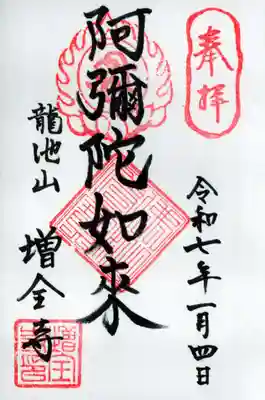 奉拝
令和七年一月四日
阿彌陀如來
龍池山
増全寺